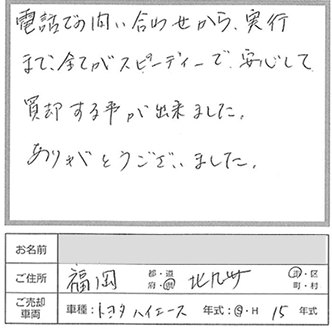 電話での問い合わせから、実行
まで、全てがスピーディーで、安心して
買却する事が出来ました。
ありがとうございました。
お名前
ご住所 福岡 都・道 府・県 北九州 市・区 町・村
ご売却車両 車種：トヨタ ハイエース 年式：S・H 15 年式